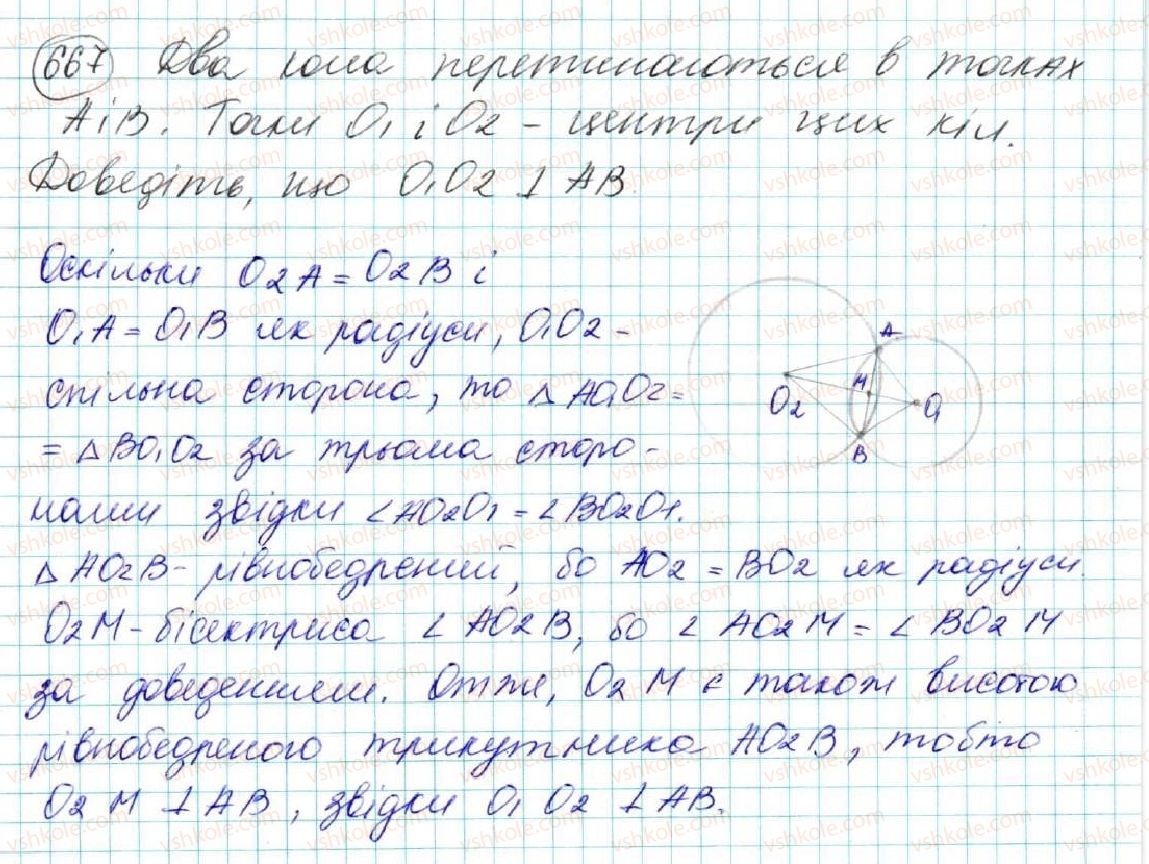 667 Два кола перетинаються в точках
A і B. Точки O1 і O2 - центри цих кіл.
Доведіть, що O1O2 ⊥ AB.
Оскільки O2A = O2B і
O1A = O1B як радіуси, O1O2 -
спільна сторона, то △AO1O2 =
= △BO1O2 за трьома сторо-
нами звідки ∠AO2O1 = ∠BO2O1.
△AO2B - рівнобедрений, бо AO2 = BO2 як радіуси.
O2M - бісектриса ∠AO2B, бо ∠AO2M = ∠BO2M
за доведенням. Отже, O2M є також висотою
рівнобедреного трикутника AO2B, тобто
O2M ⊥ AB, звідки O1O2 ⊥ AB.
A
M
O2
O1
B
vshkole.com